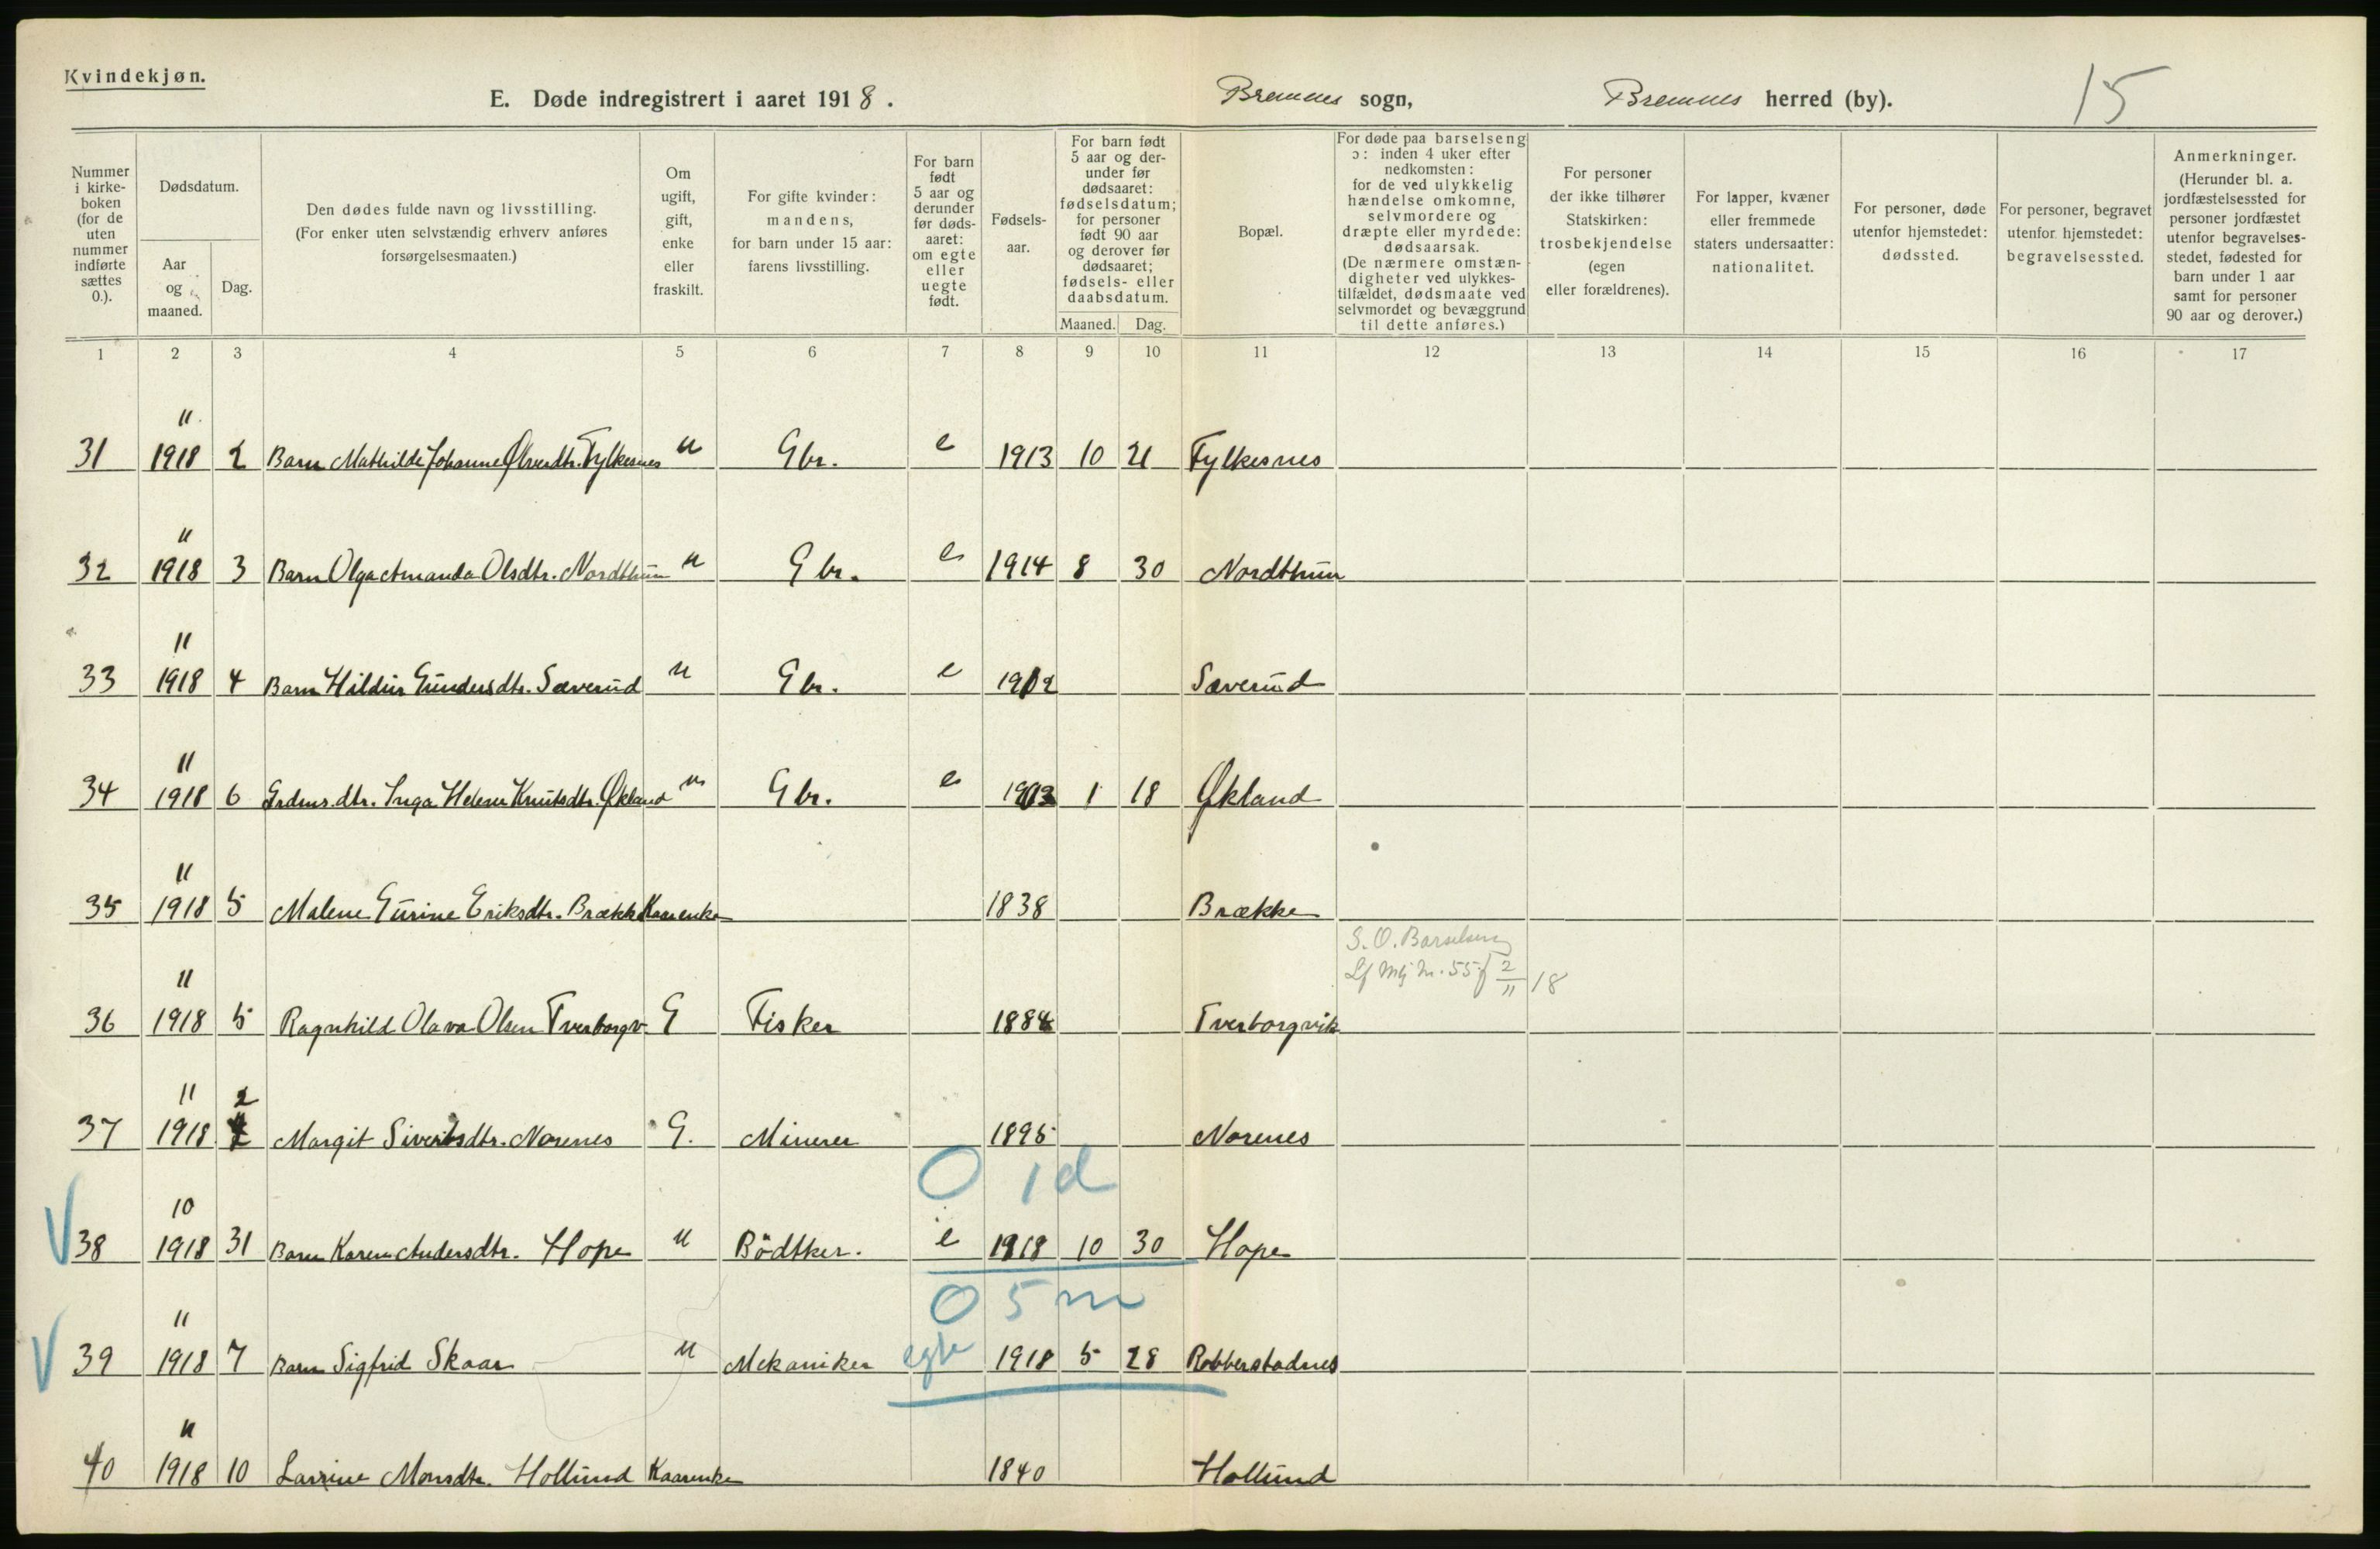 Kvindekjøn.
E. Døde indregistrert i aaret 1918.
Bremnes sogn,
Bremnes herred (by).
15
Nummer i kirkeboken (for de uten nummer indførte sættes 0.).
Dødsdatum.
Aar og maaned.
Dag.
Den dødes fulde navn og livsstilling.
(For enker uten selvstændig erhverv anføres
forsørgelsesmaaten.)
Om ugift, gift, enke eller fraskilt.
For gifte kvinder: mandens, for barn under 15 aar: farens livsstilling.
For barn født 5 aar og derunder før dødsaaret: om egte eller uegte født.
Fødselsaar.
For barn født 5 aar og derunder før dødsaaret: fødselsdatum; for personer født 90 aar og derover før dødsaaret; fødsels- eller daabsdatum.
Maaned. Dag.
Bopæl.
For døde paa barselseng ɔ: inden 4 uker efter nedkomsten: for de ved ulykkelig hændelse omkomne, selvmordere og dræpte eller myrdede: dødsaarsak. (De nærmere omstændigheter ved ulykkestilfældet, dødsmaate ved selvmordet og bevæggrund til dette anføres.)
For personer der ikke tilhører Statskirken: trosbekjendelse (egen eller forældrenes).
For lapper, kvæner eller fremmede staters undersaatter: nationalitet.
For personer, døde utenfor hjemstedet: dødssted.
For personer, begravet utenfor hjemstedet: begravelsessted.
Anmerkninger. (Herunder bl. a. jordfæstelsessted for personer jordfæstet utenfor begravelsesstedet, fødested for barn under 1 aar samt for personer 90 aar og derover.)
1 2 3 4 5 6 7 8 9 10 11 12 13 14 15 16 17
11
31 1918 2 Barn Mathilde Johanne Ølverdtr. Fylkesnes u Gbr. e 1913 10 21 Fylkesnes
11
32 1918 3 Barn Olga Amanda Olsdtr. Nordthun u Gbr. e 1914 8 30 Nordthun
11
33 1918 4 Barn Hildur Gundersdtr. Sæverud u Gbr. e 1912 Sæverud
11
34 1918 6 Grdmr. dtr. Inga Helene Knutsdtr. Økland u Gbr. e 1913 1 18 Økland
11
35 1918 5 Malene Gurine Eriksdtr. Brække Kaarenke 1838 Brække
S. O. Barselseng
Lf Mlj Nr. 55 f 2/11 18
11
36 1918 5 Ragnhild Olava Olsen Tverborgv. G Fisker 1884 Tverborgvik
11 2
37 1918 Margit Sivertsdtr. Norenes G. Minerer 1895 Norenes
0 1d
10
38 1918 31 Barn Karen Andersdtr. Hope u Bödtker. e 1918 10 30 Hope
0 5m
11
39 1918 7 Barn Sigfrid Skaar u Mekaniker egte 1918 5 28 Robberstadnes
11
40 1918 10 Larsine Monsdtr. Hollund Kaarenke 1840 Hollund